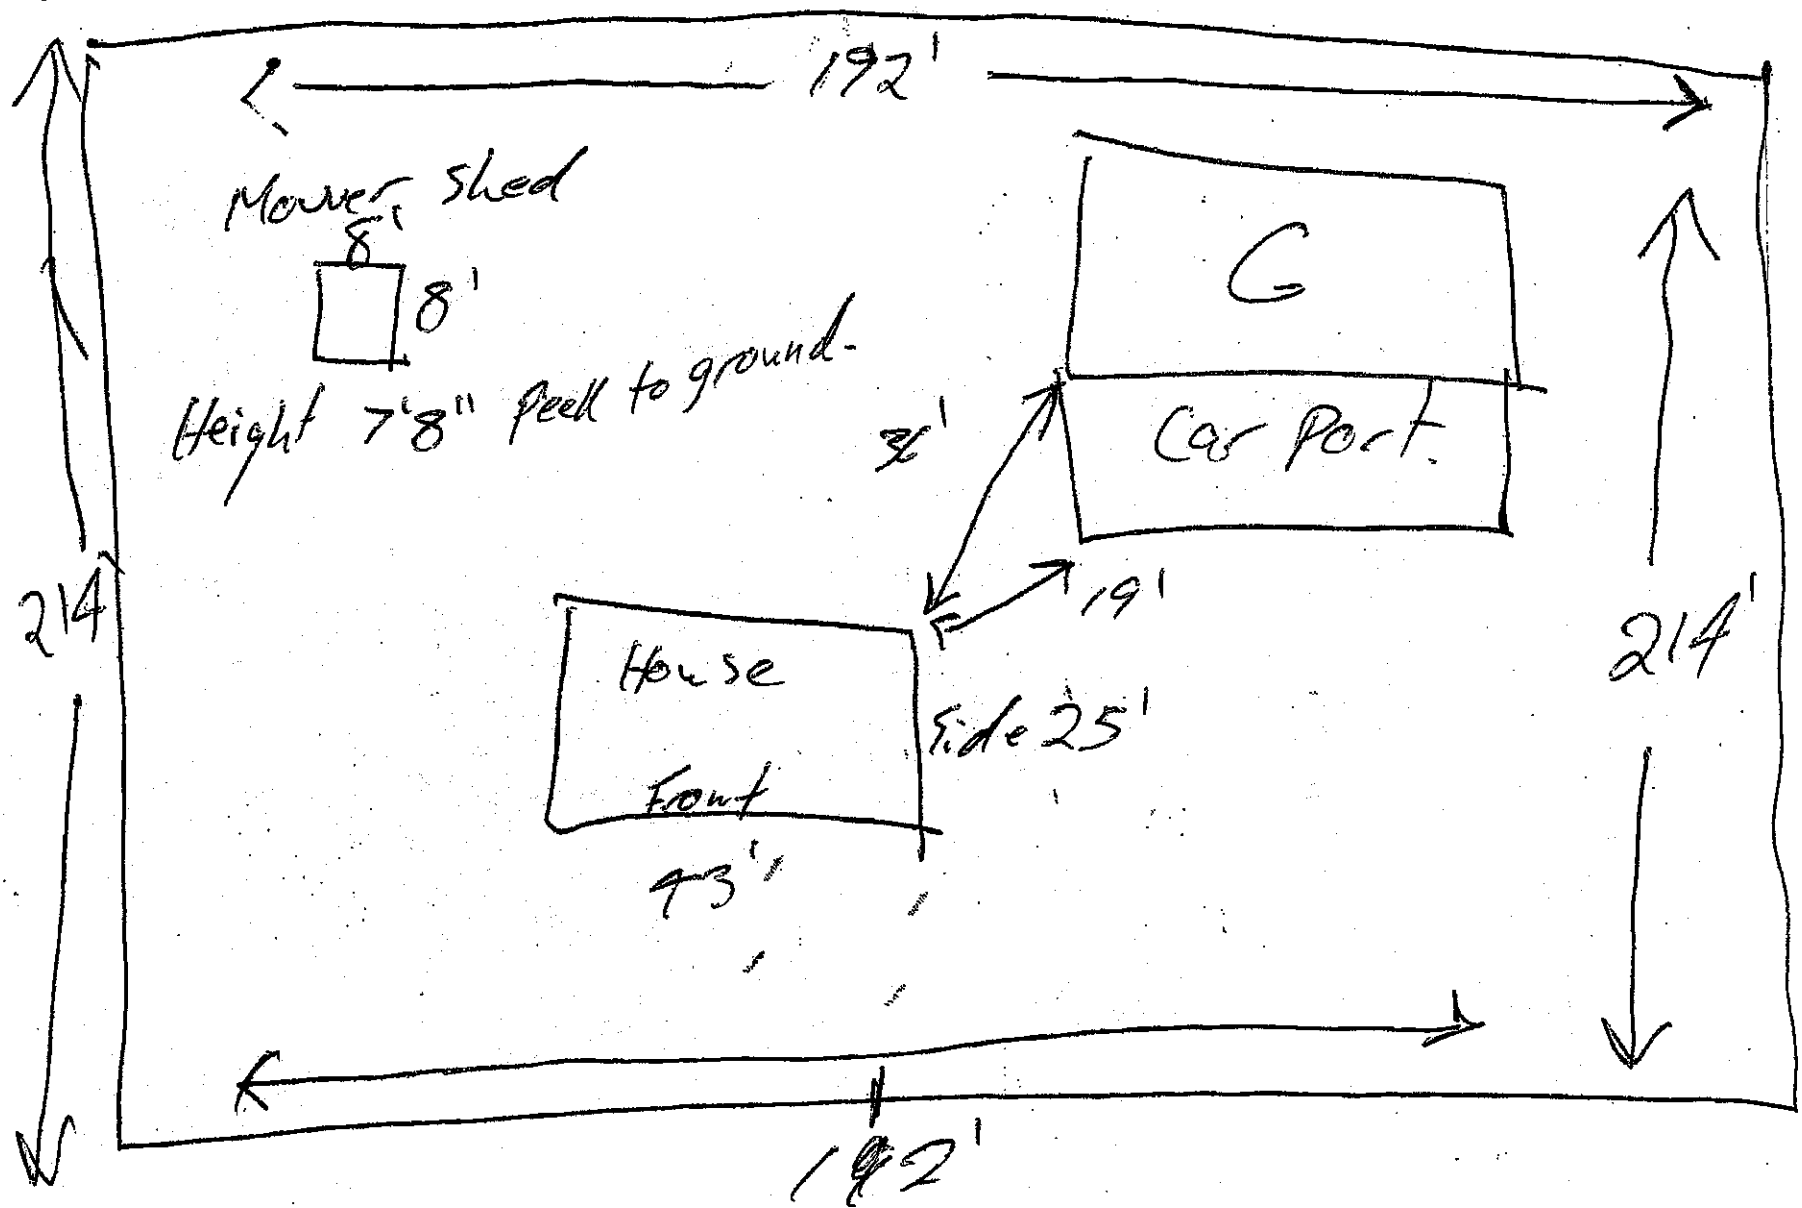 192'
Mower shed
8'
8'
G
Height 7'8" Peek to ground.
Car Port.
19'
214'
214'
House
Side 25'
Front
43'
192'